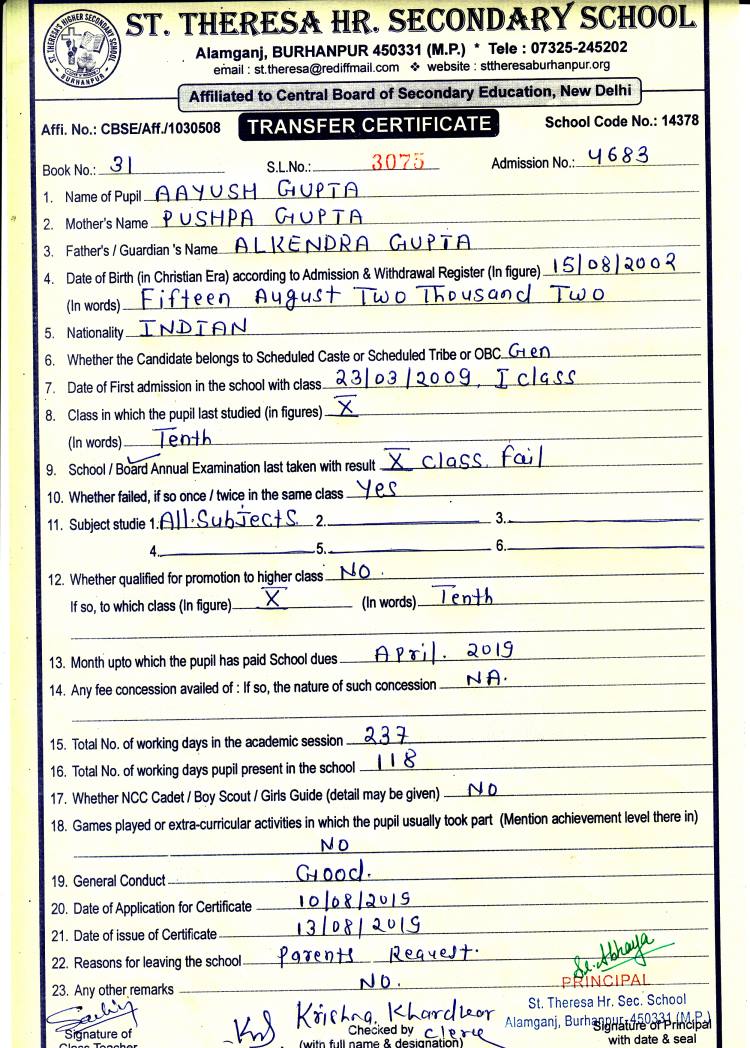 ST. THERESA HR. SECONDARY SCHOOL
ST. THERESA'S HIGHER SECONDARY SCHOOL
BURHANPUR
Alamganj, BURHANPUR 450331 (M.P.) * Tele : 07325-245202
email : st.theresa@rediffmail.com ❖ website : sttheresaburhanpur.org
Affiliated to Central Board of Secondary Education, New Delhi
Affi. No.: CBSE/Aff./1030508 TRANSFER CERTIFICATE School Code No.: 14378
Book No.: 31 S.L.No.: 3075 Admission No.: 4683
1. Name of Pupil AAYUSH GUPTA
2. Mother's Name PUSHPA GUPTA
3. Father's / Guardian 's Name ALKENDRA GUPTA
4. Date of Birth (in Christian Era) according to Admission & Withdrawal Register (In figure) 15/08/2002
(In words) Fifteen August Two Thousand Two
5. Nationality INDIAN
6. Whether the Candidate belongs to Scheduled Caste or Scheduled Tribe or OBC Gen
7. Date of First admission in the school with class 23/03/2009, I class
8. Class in which the pupil last studied (in figures) X
(In words) Tenth
9. School / Board Annual Examination last taken with result X class, fail
10. Whether failed, if so once / twice in the same class Yes
11. Subject studie 1. All Subjects 2. 3.
4. 5. 6.
12. Whether qualified for promotion to higher class NO.
If so, to which class (In figure) X (In words) Tenth
13. Month upto which the pupil has paid School dues April. 2019
14. Any fee concession availed of : If so, the nature of such concession NA.
15. Total No. of working days in the academic session 237
16. Total No. of working days pupil present in the school 118
17. Whether NCC Cadet / Boy Scout / Girls Guide (detail may be given) NO
18. Games played or extra-curricular activities in which the pupil usually took part (Mention achievement level there in)
NO
19. General Conduct Good.
20. Date of Application for Certificate 10/08/2019
21. Date of issue of Certificate 13/08/2019
22. Reasons for leaving the school Parents Request.
23. Any other remarks NO.
Sr. Abhaya
PRINCIPAL
St. Theresa Hr. Sec. School
Alamganj, Burhanpur-450331 (M.P.)
Krishna
Signature of
Class Teacher
Checked by Clerk
(with full name & designation)
Signature of Principal
with date & seal